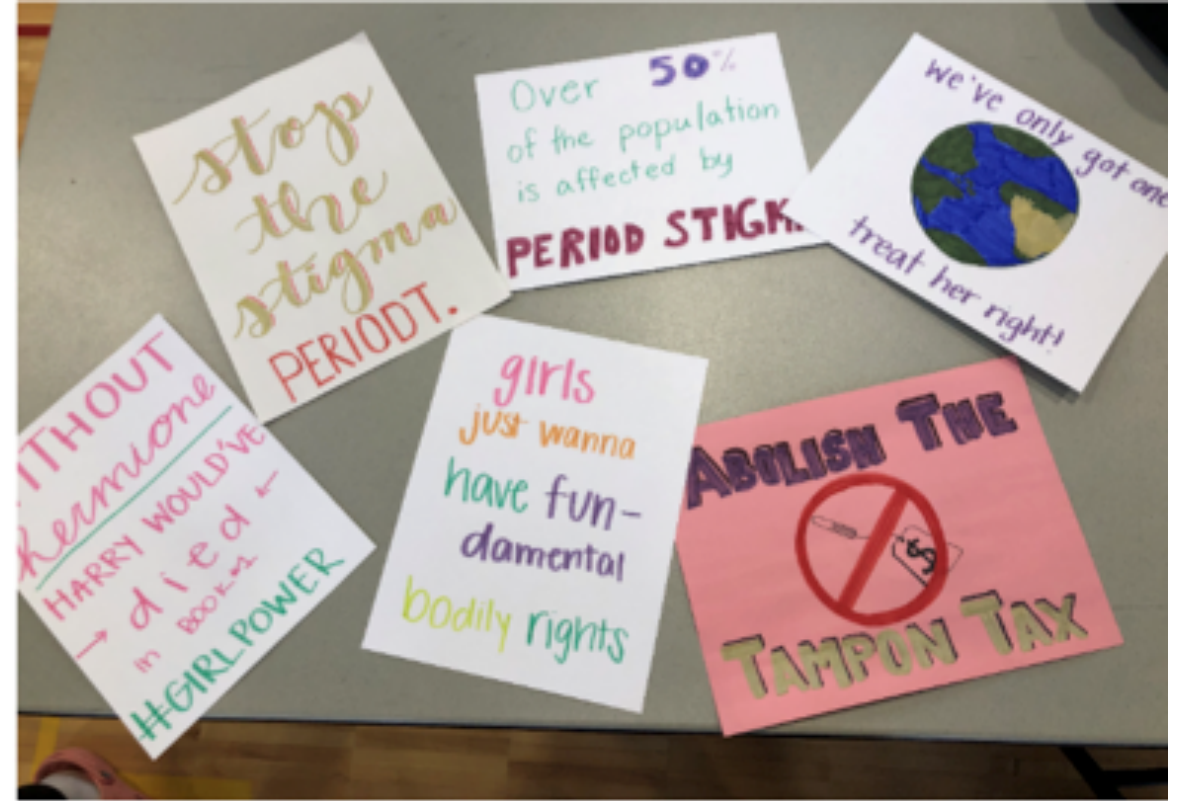 stop
the
stigma
PERIODT.
Over 50%
of the population
is affected by
PERIOD STIGM
we've only got one
treat her right!
ITHOUT
hermione
HARRY WOULD'VE
→ died ←
in BOOK #1
#GIRLPOWER
girls
just wanna
have fun-
damental
bodily rights
ABOLISH THE
$
TAMPON TAX